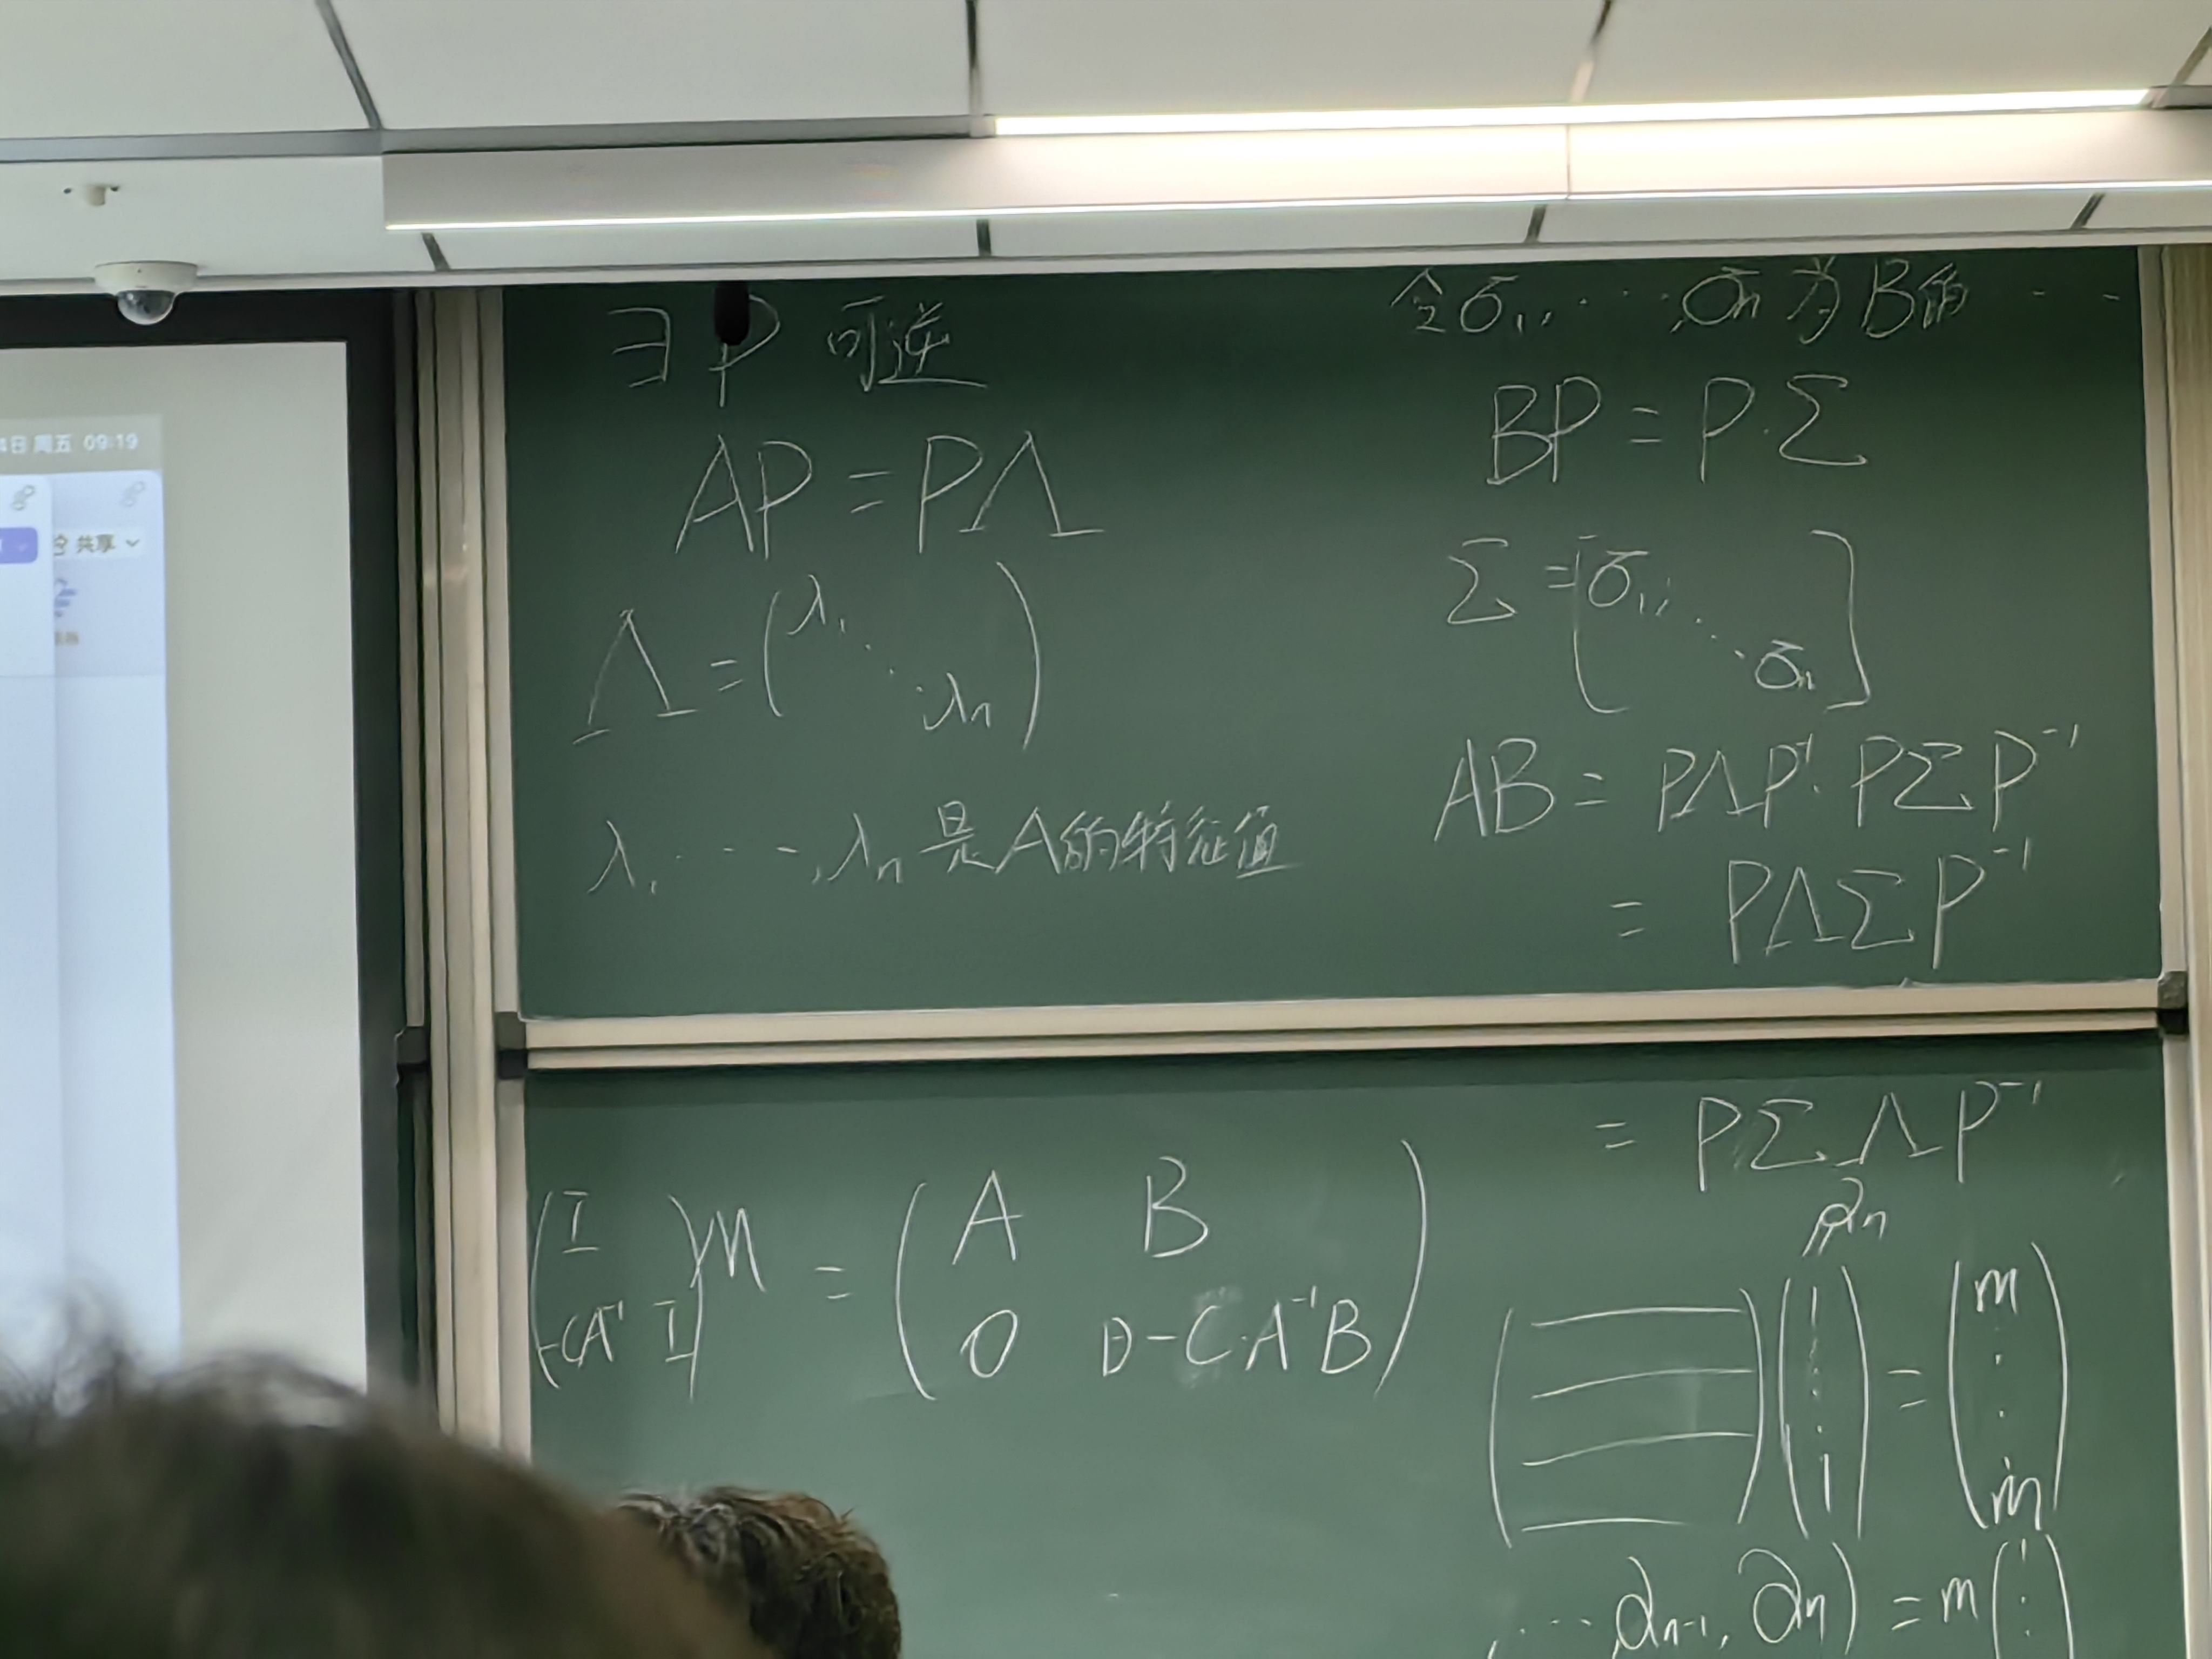 4日 周五 09:19
共享
∃ P 可逆
AP = PΛ
Λ = (λ₁ ⋱ λn)
λ₁ ⋯, λn 是A的特征值
令σ₁, ⋯, σn 为B的 ⋯
BP = P·Σ
Σ = [σ₁, ⋱ σn]
AB = PΛP⁻¹·PΣP⁻¹
= PΛΣP⁻¹
= PΣΛP⁻¹
(I
-CA⁻¹ I) M = (A B
O D-C·A⁻¹B)
αn
(1 ⋮ 1) = (m ⋮ m)
⋯, αn-1, αn) = m(1 ⋮